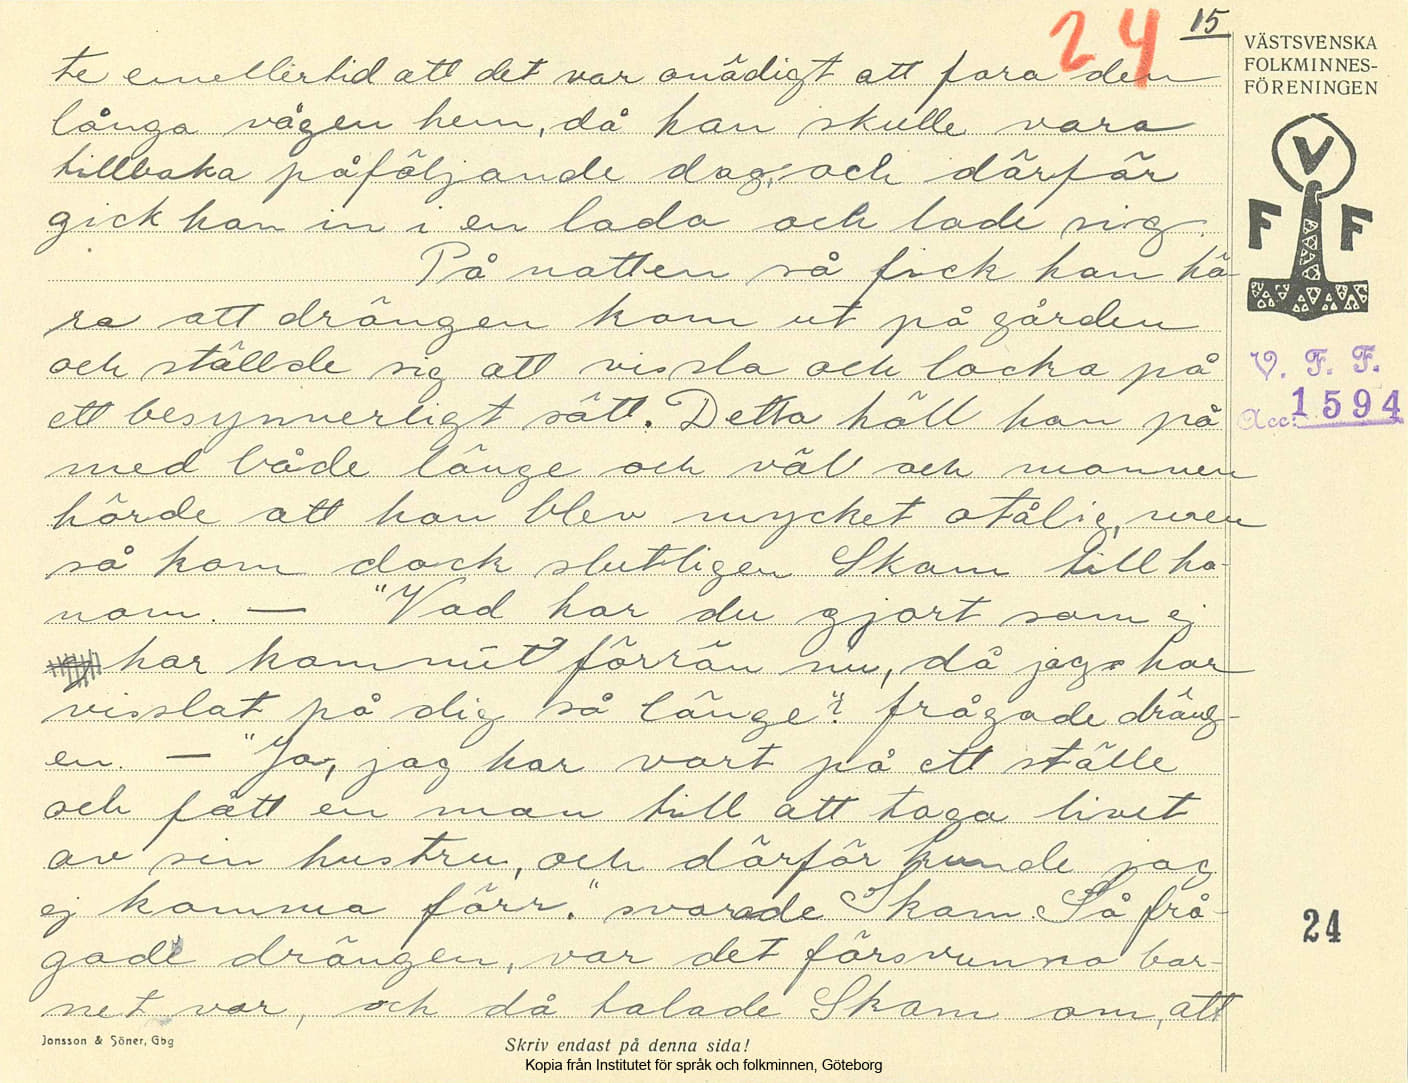 24 15
VÄSTSVENSKA
FOLKMINNES-
FÖRENINGEN
V
F F
V. F. F.
Acc: 1594
te emellertid att det var onödigt att fara den
långa vägen hem, då han skulle vara
tillbaka påföljande dag, och därför
gick han in i en lada och lade sig.
På natten så fick han hö-
ra att drängen kom ut på gården
och ställde sig att vissla och locka på
ett besynnerligt sätt. Detta höll han på
med både länge och väl och mannen
hörde att han blev mycket otålig, men
så kom dock slutligen Skam till ho-
nom. — "Vad har du gjort som ej
har kommit förrän nu, då jag har
visslat på dig så länge"? frågade dräng-
en. — "Ja, jag har vart på ett ställe
och fått en man till att taga livet
av sin hustru, och därför kunde jag
ej komma förr." svarade Skam. Så frå-
gade drängen, var det försvunna bar-
net var, och då talade Skam om, att
24
Jonsson & Söner, Gbg
Skriv endast på denna sida!
Kopia från Institutet för språk och folkminnen, Göteborg